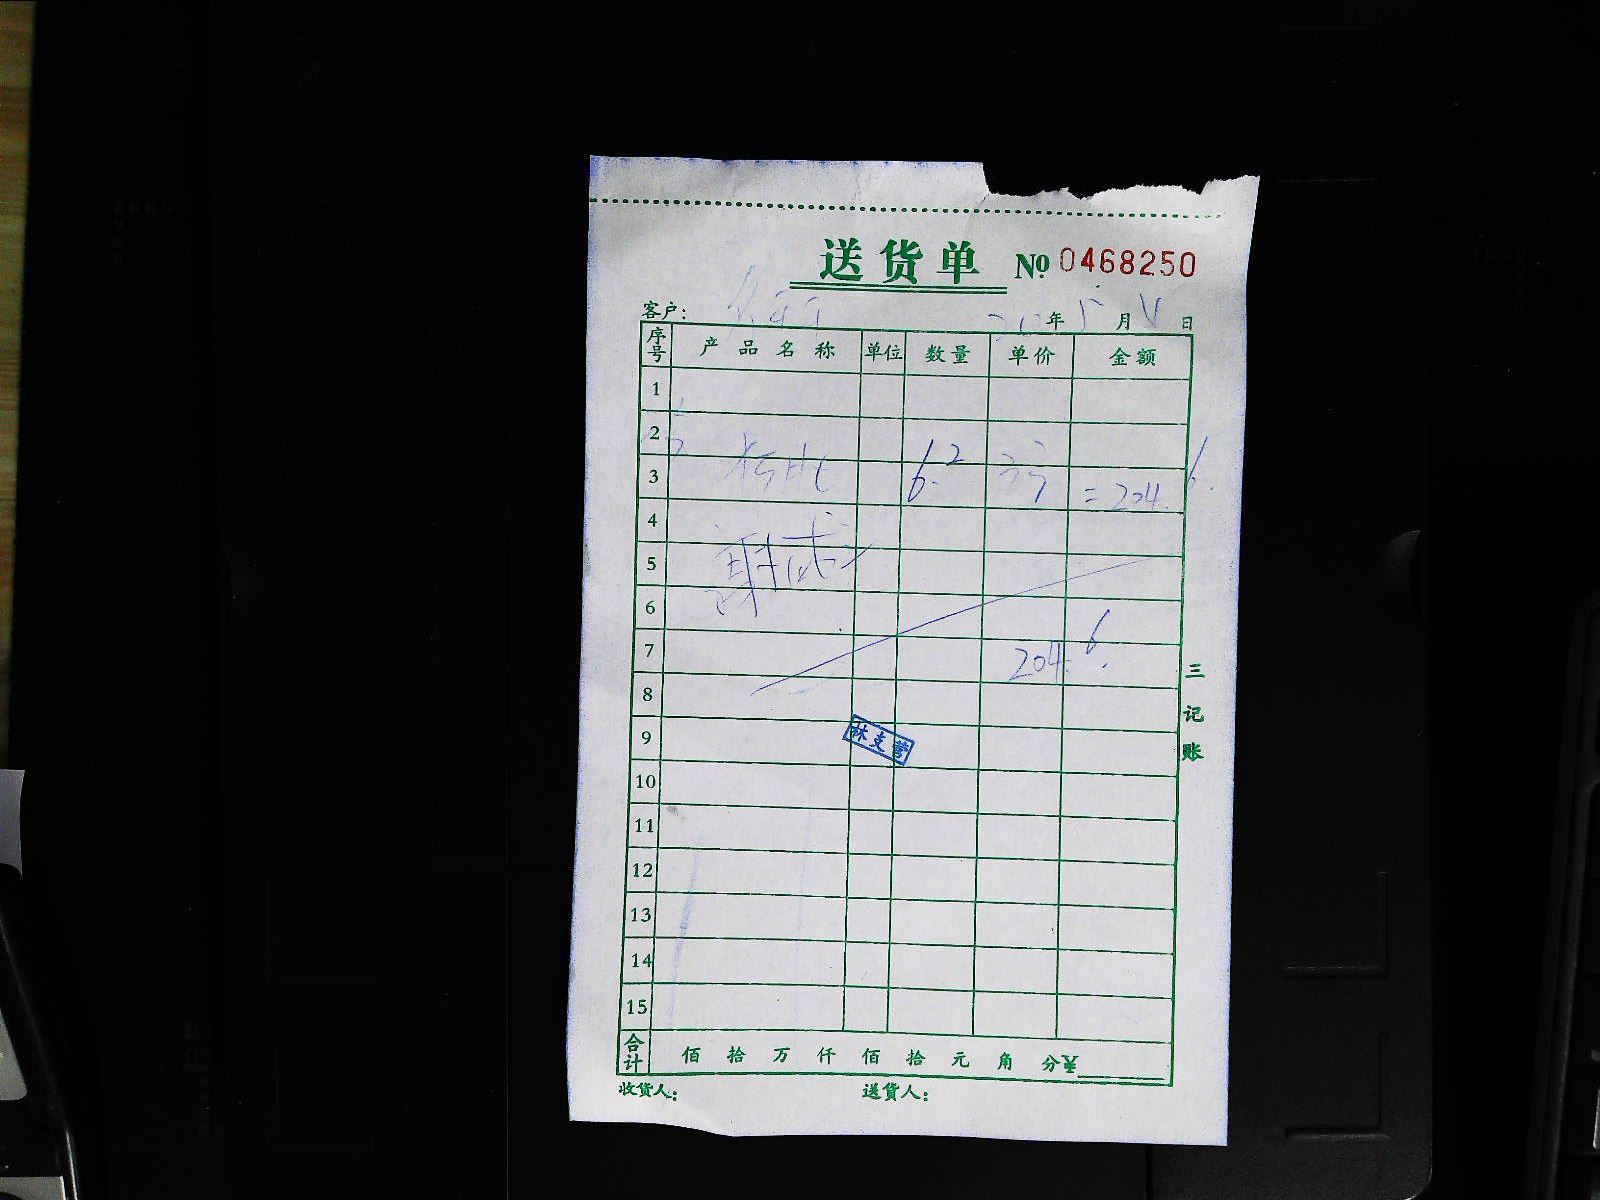 送货单 № 0468250
客户： 年 5 月 日
序号 产品名称 单位 数量 单价 金额
1
2
3 6.2 33 =204.6
4
5
6
7 204.6
8
9
林支营
10
11
12
13
14
15
合计 佰 拾 万 仟 佰 拾 元 角 分 ¥
收货人： 送货人：
三记账